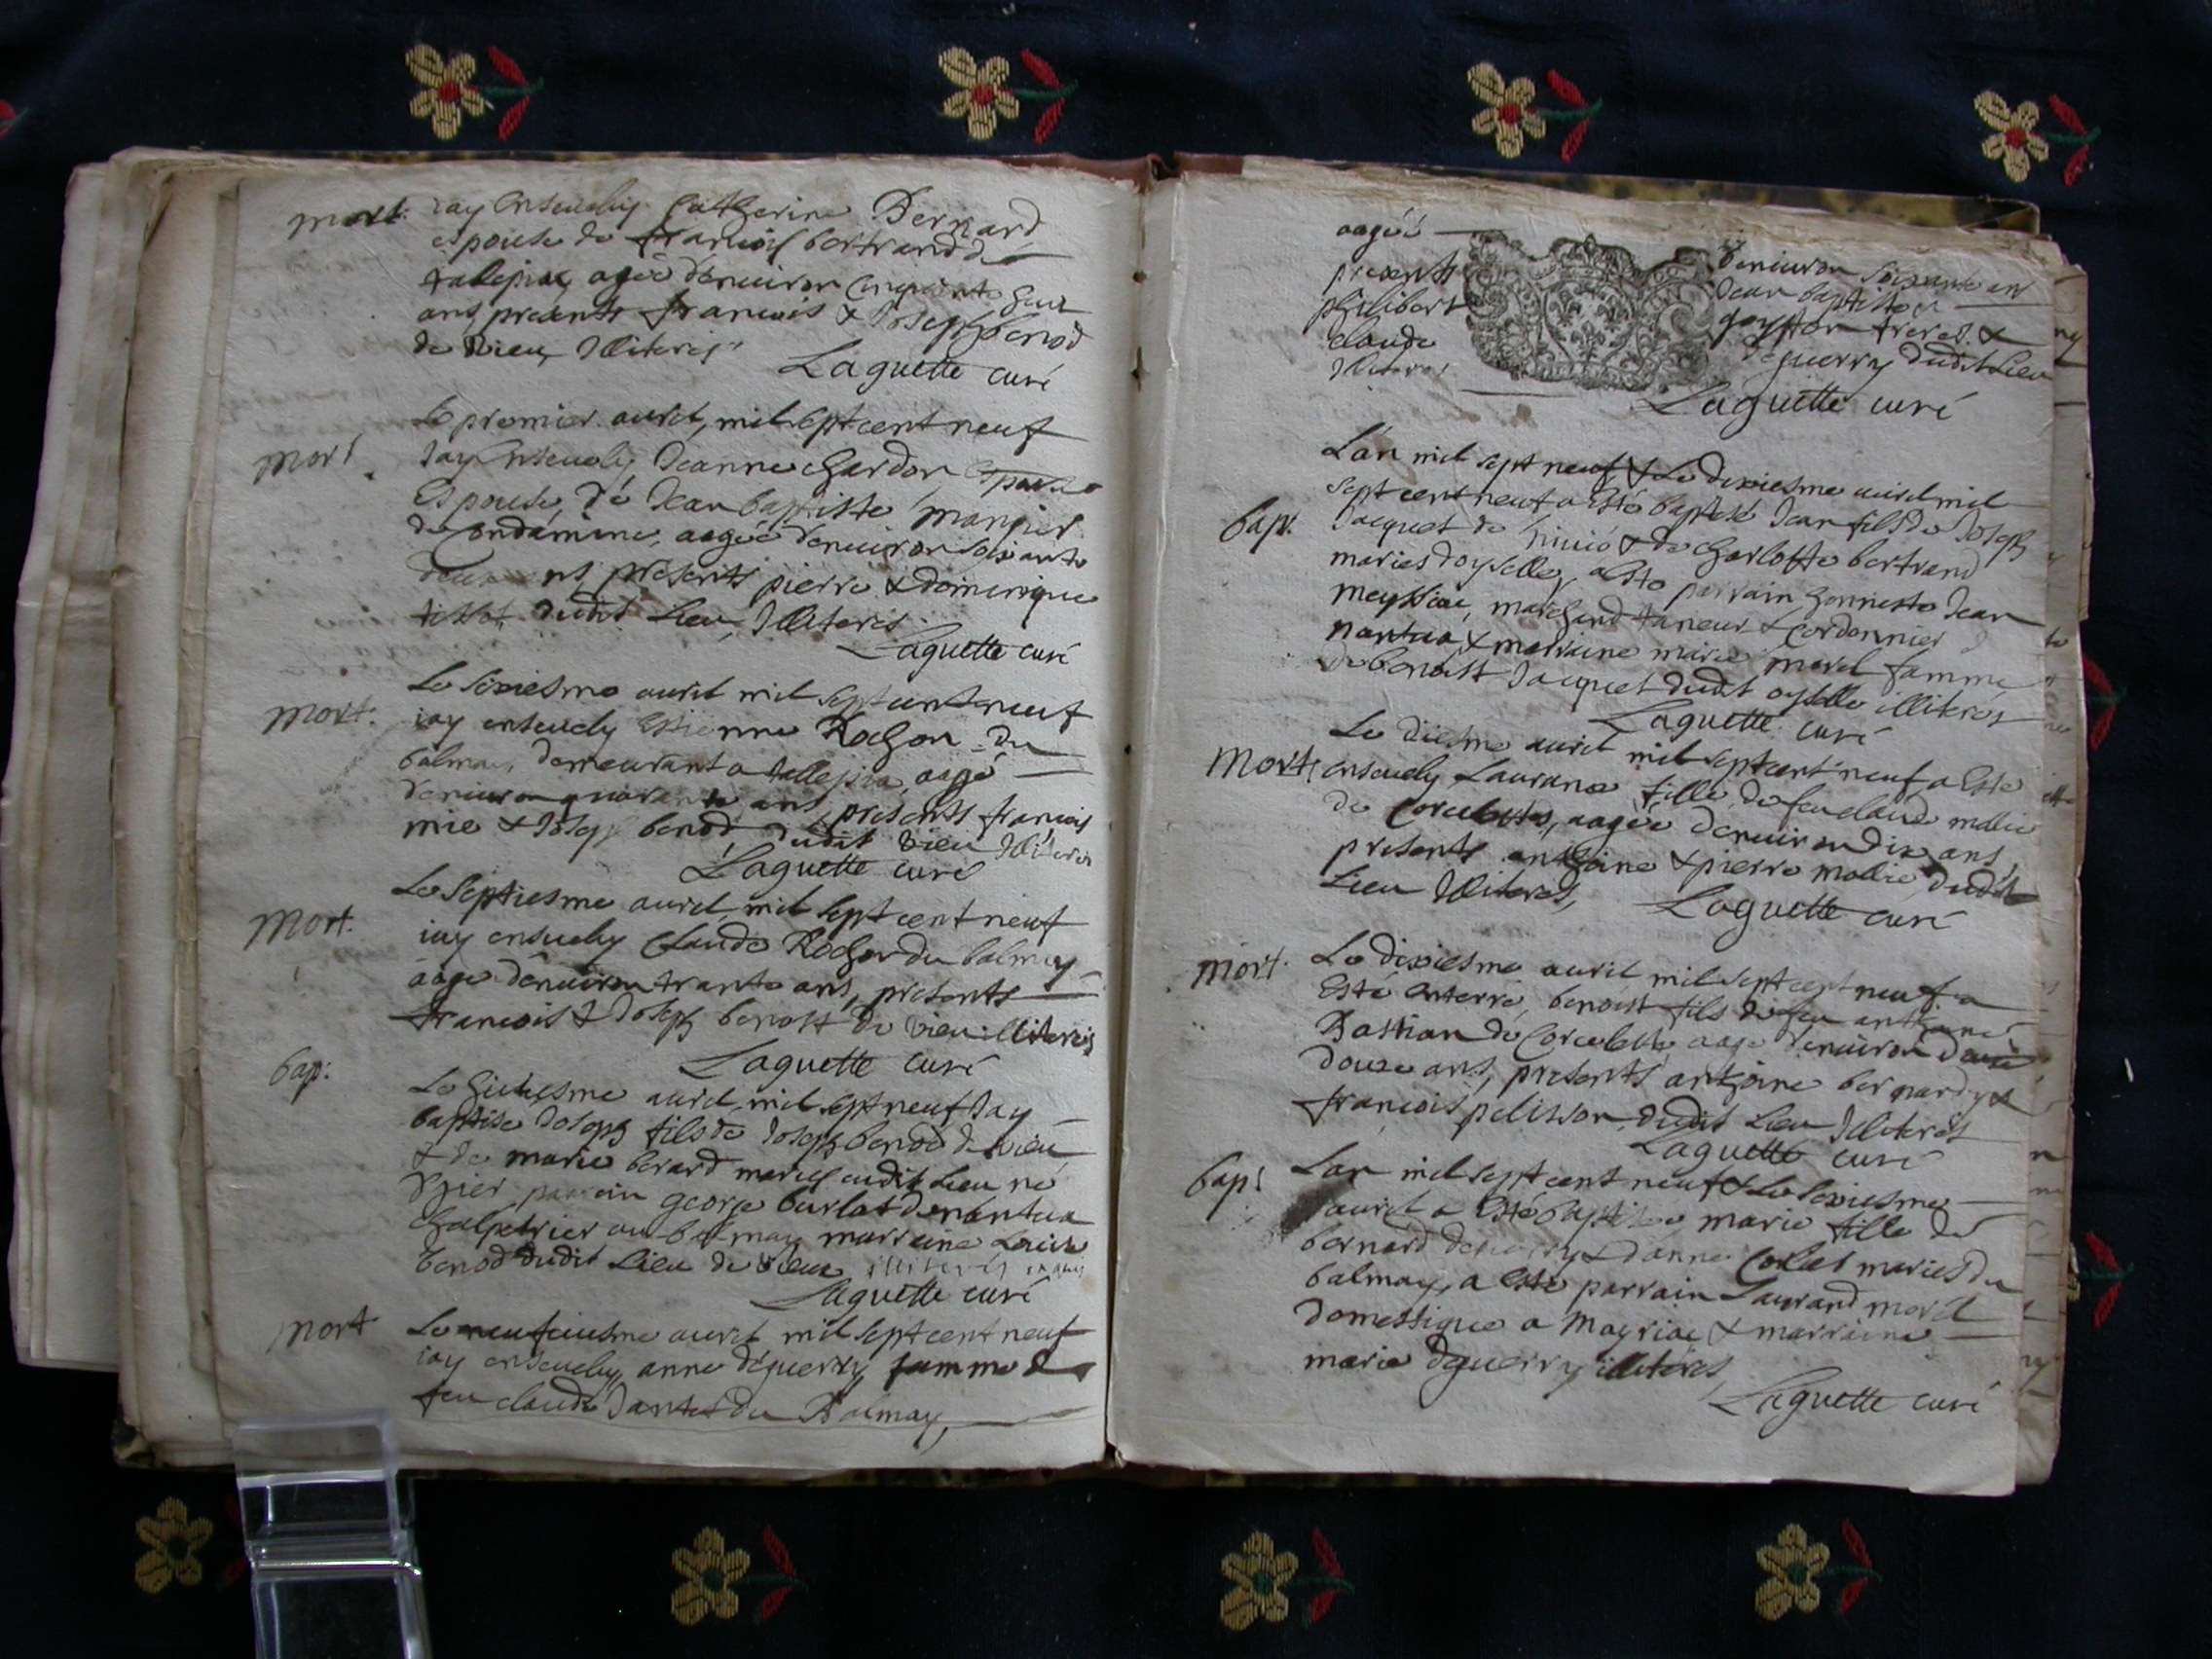 mort. iay ensevely Catherine Bernard
espouse de francois bertrand de
talepiac agée d'enuiron cinquante
ans presents francois & Joseph benod
de Vieu Illiteres
Laguette curé
Le premier auril, mil sept cent neuf
mort Jay Enseuely Jeanne chardon
Espouse, de Jean baptiste mannier
de Condamine, aagée d'enuiron soixante
deux ans presents pierre & dominique
dudit Lieu, Illiteres
Laguette curé
Le sixiesme auril mil sept cent neuf
mort. iay enseuely Estienne Rochon du
balmay, demeurant a tallepia, aagé
d'enuiron quarante ans, presents francois
mie & Joseph benod dudit Vieu Illiteres
Laguette curé
Le septiesme auril, mil sept cent neuf
Mort. iay enseuely Claude Rochon du balmay
aagé d'enuiron trante ans, presents
francois & Joseph benost de Vieu illiteres
Laguette curé
bap: Le huitiesme auril, mil sept neuf Jay
baptisé Joseph fils de Joseph benod de Vieu
& de marie berard maries dudit Lieu né
hier parrain george burlat de nantua
au balmay marraine Louise
benod dudit Lieu de Vieu illiteres
Laguette curé
mort Le neufuiesme auril mil sept cent neuf
iay enseuely anne deguerry famme de
feu claude Jantet du Balmay,
aagée d'enuiron soixante an
presents Jean baptiste &
philibert goyffon freres &
claude deguerry dudit Lieu
Illiteres
Laguette curé
L'an mil sept neuf & Le dixiesme auril mil
sept cent neuf a Esté baptisé Jean fils de Joseph
bap. Jacquet de & de charlotte bertrand
maries d'oyselle, a Esté parrain honneste Jean
meyssiac, marchand taneur & Cordonnier
nantua & marraine marie morel famme
de benoist Jacquet dudit oyselle illiteres
Laguette curé
Le diesme auril mil sept cent neuf a Esté
Mort. enseuely Laurance fille de feu claude mollie
de Corcelettes, aagée d'enuiron dix ans,
presents anthoine & pierre mollie dudit
Lieu Illiteres, Laguette curé
mort. Le dixiesme auril mil sept cent neuf a
Esté Enterré, benoist fils de feu anthoine
Bastian de Corcelette aagé d'enuiron
douze ans, presents anthoine bernard &
françois pelisson dudit Lieu Illiteres
Laguette curé
bap: Lan mil sept cent neuf & Le sixiesme
auril a Esté baptisée marie fille de
bernard deguerry & d'anne Corlet maries du
balmay, a Esté parrain Laurand morel
domestique a Mayriac & marraine
marie deguerry illiteres
Laguette curé